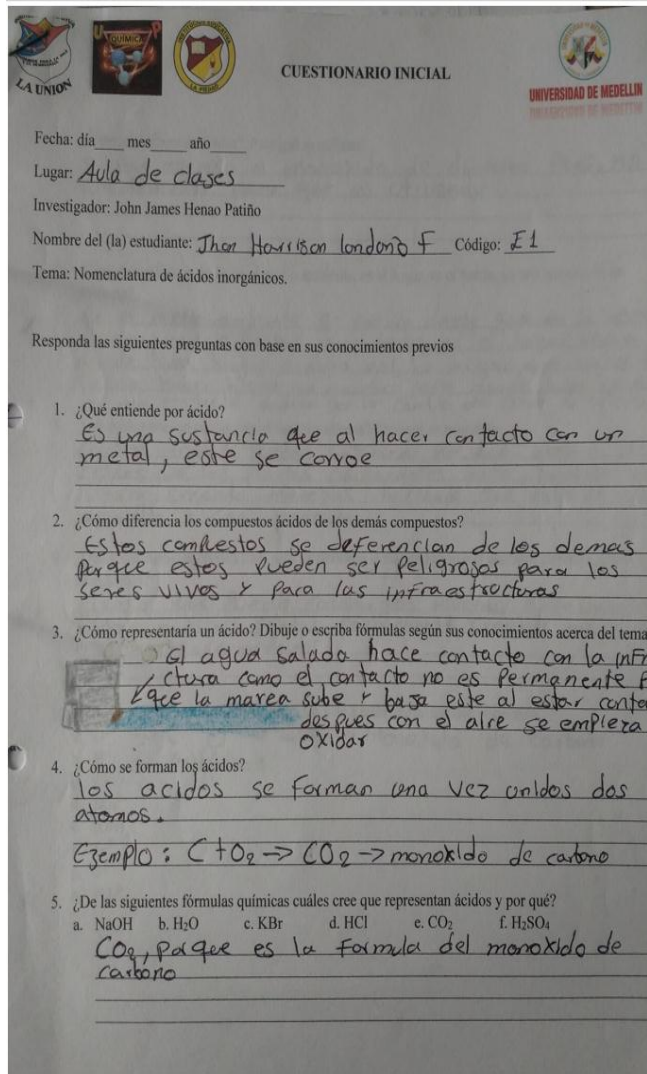 LA UNION
QUÍMICA
CUESTIONARIO INICIAL
UNIVERSIDAD DE MEDELLIN
Fecha: día____ mes______ año______
Lugar: Aula de clases
Investigador: John James Henao Patiño
Nombre del (la) estudiante: Jhon Harrison londoño F Código: E1
Tema: Nomenclatura de ácidos inorgánicos.
Responda las siguientes preguntas con base en sus conocimientos previos
1. ¿Qué entiende por ácido?
Es una sustancia que al hacer contacto con un
metal, este se corroe
2. ¿Cómo diferencia los compuestos ácidos de los demás compuestos?
Estos compuestos se deferencian de los demas
porque estos pueden ser peligrosos para los
seres vivos y para las infraestructuras
3. ¿Cómo representaría un ácido? Dibuje o escriba fórmulas según sus conocimientos acerca del tema
El agua salada hace contacto con la infr
ctura como el contacto no es permanente p
que la marea sube y baja este al estar conta
despues con el aire se empieza
oxidar
4. ¿Cómo se forman los ácidos?
los acidos se forman una vez unidos dos
atomos.
Ejemplo: C+O₂ → CO₂ → monoxido de carbono
5. ¿De las siguientes fórmulas químicas cuáles cree que representan ácidos y por qué?
a. NaOH b. H₂O c. KBr d. HCl e. CO₂ f. H₂SO₄
CO₂, porque es la formula del monoxido de
carbono